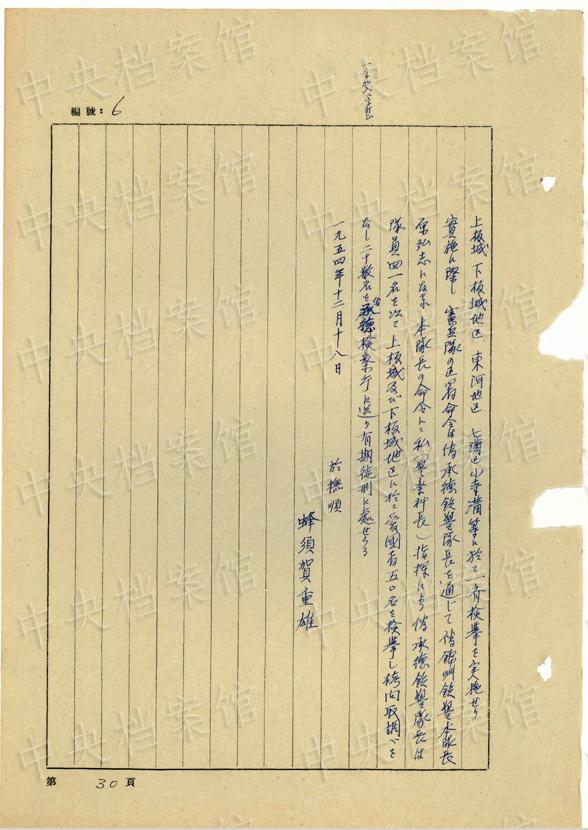 編號：6
上板城 下板城地区 東河地区 七溝区小寺溝等に於て一斉検挙を実施せり
實施に際し 憲兵隊の区署命令は偽承德鉄警隊長を通じて 偽錦州鉄警本隊長
原弘志になさ 本隊長の命令にて私（警素科長）指揮により偽承德鉄警隊長は
隊員四一名を次て上板城及び下板城地区に於て愛国者五〇名を検挙し拷问取調べを
なし二十数名を承德検察庁に送り有期徒刑に処せらる
一九五四年十二月十八日
於撫順
蜂須賀重雄
第 30 頁
中央档案馆